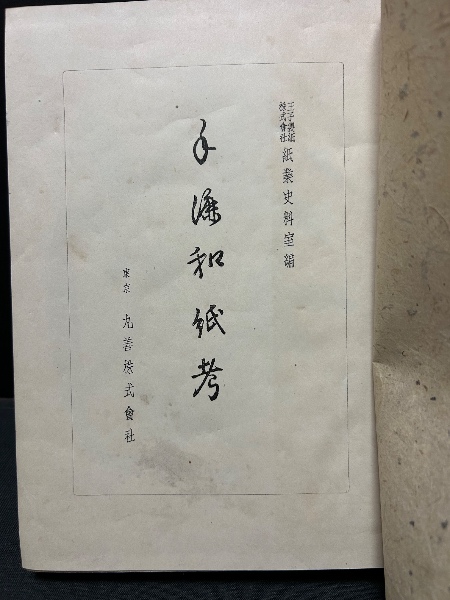 王子製紙
株式會社
紙業史料室編
手漉和紙考
東京 丸善株式會社